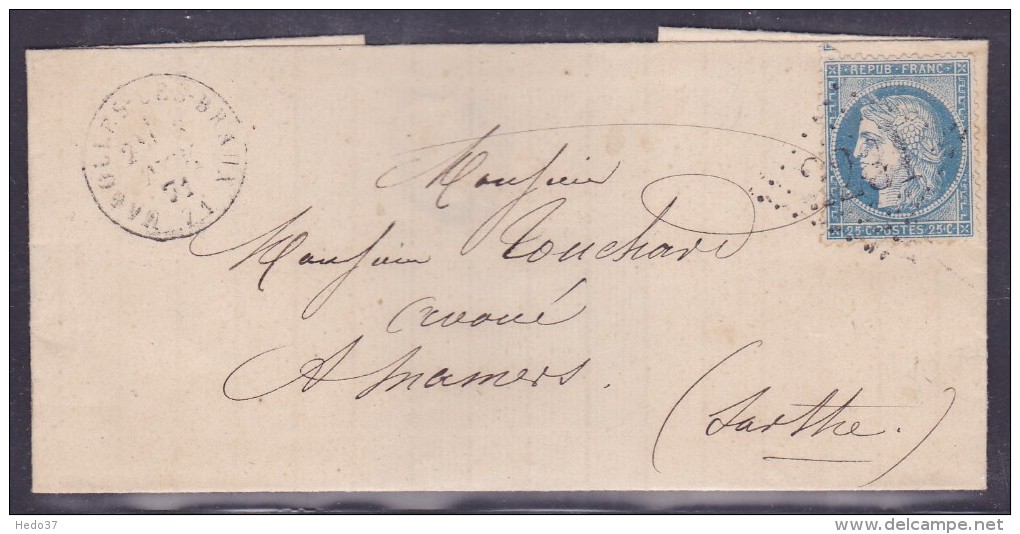 MAROLLES-LES-BRAULT
71
REPUB·FRANC
25 C·POSTES 25 C
Monsieur
Monsieur Touchard
avoué
A Mamers.
(Sarthe.)
Hedo37
www.delcampe.net